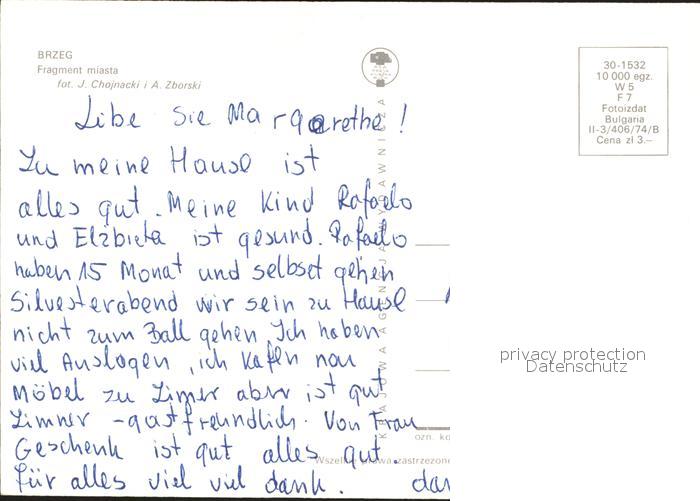 BRZEG
Fragment miasta
fot. J. Chojnacki i A. Zborski
30-1532
10 000 egz.
W 5
F 7
Fotoizdat
Bulgaria
II-3/406/74/B
Cena zł 3.—
KRAJOWA AGENCJA WYDAWNICZA
Libe Sie Margarethe!
Zu meine Hause ist
alles gut. Meine Kind Rafaelo
und Elżbieta ist gesund. Rafaelo
haben 15 Monat und selbset gehen
Silvesterabend wir sein zu Hause
nicht zum Ball gehen. Ich haben
viel Auslagen, ich kafen nau
Möbel zu Zimer aber ist gut
Zimner - gastfreundlich. Von Frau
Geschenk ist gut alles gut.
für alles viel viel dank.
ozn. ko
Wszelkie prawa zastrzeżone
privacy protection
Datenschutz